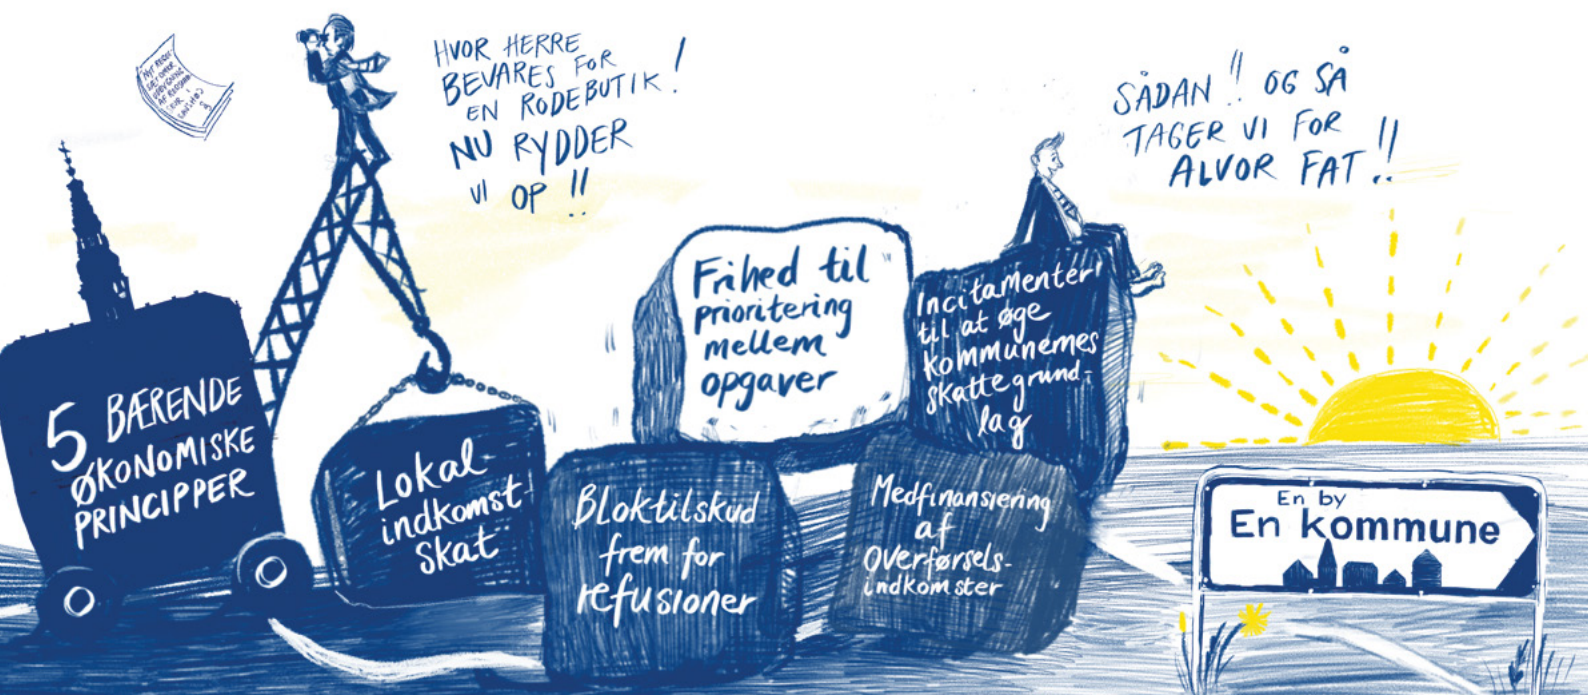 HVOR HERRE
BEVARES FOR
EN RODEBUTIK!
NU RYDDER
VI OP!!
SÅDAN!! OG SÅ
TAGER VI FOR
ALVOR FAT!!
5 BÆRENDE
ØKONOMISKE
PRINCIPPER
Lokal
indkomst
skat
Bloktilskud
frem for
refusioner
Frihed til
prioritering
mellem
opgaver
Incitamenter
til at øge
kommunernes
skattegrund-
lag
Medfinansiering
af
Overførsels-
indkomster
En by
En kommune